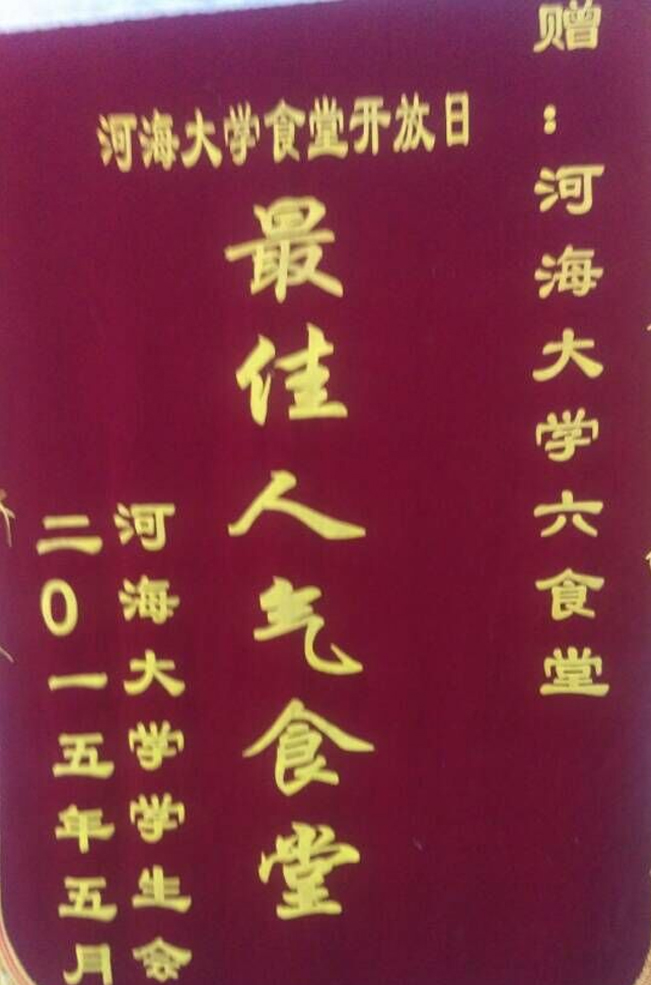 赠：河海大学六食堂
河海大学食堂开放日
最佳人气食堂
河海大学学生会
二0一五年五月